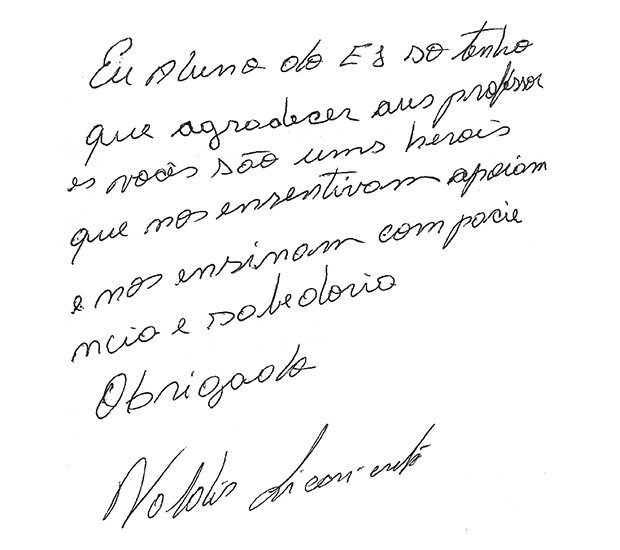 Eu aluna do E J so tenho
que agradecer aus professor
es vocês são ums herois
que nos ensentivam apoiam
e nos ensinam com pacie
ncia e sabedoria
Obrigada